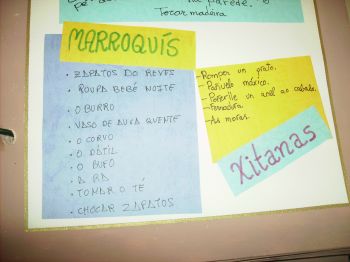 na parede.
Tocar madeira
MARROQUÍS
· ZAPATOS DO REVÉS
· ROUPA BEBÉ NOITE
· O BURRO
· VASO DE AUGA QUENTE
· O CORVO
· O DÁTIL
· O BUFO
· A RA
· TOMAR O TÉ
· CHOCAR ZAPATOS
- Romper un prato.
- Pañuelo máxico.
- un anel ao cabalo.
- Ferradura
- As moras.
Xitanas